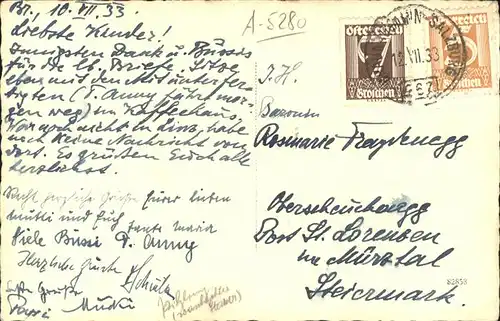 Br., 10. VII. 33
A-5280
Liebste Kinder!
Innigsten Dank u. Bussis
für die lb. Briefe. Sitze
eben mit den Mitunterfer-
tigten (T. Anny fährt mor-
gen weg) im Kaffeehaus,
War noch nicht in Linz, habe
noch keine Nachricht von
dort. Es grüßen Euch alle
herzlichst.
Recht herzliche Grüße Eurer lieben
Mutti und Euch Tante Maria
Viele Bussi T. Anny
Herzliche Grüße
Bussi Mucki
Österreich
7
Groschen
Österreich
5
Groschen
SALZBURG
12. VII. 33
I. H.
Baronin
Rosmarie Fraydenegg
Oberscheuchenegg
Post St. Lorenzen
im Mürztal
Steiermark.
82853